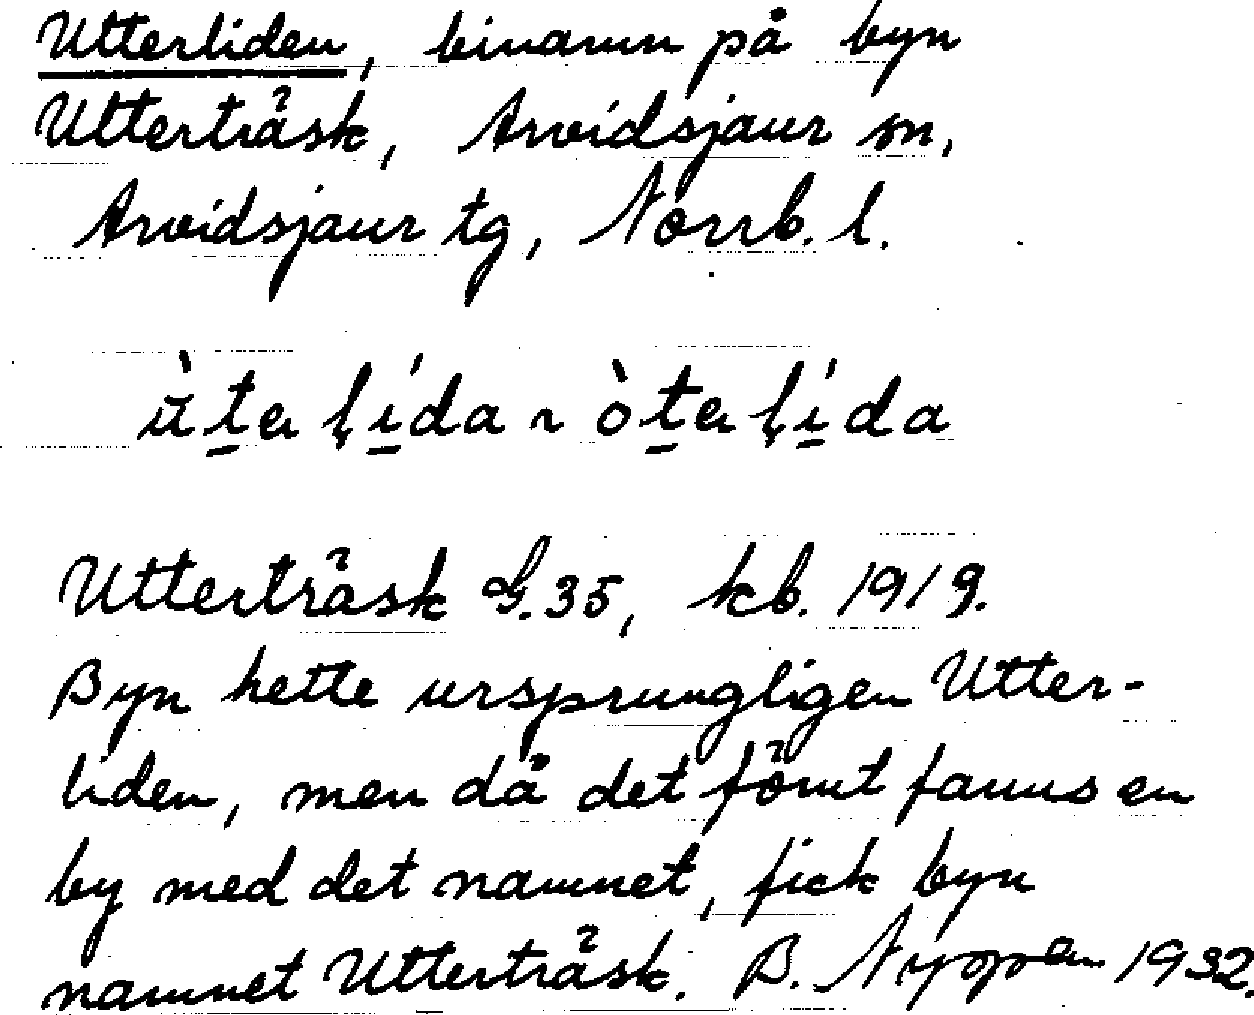 Utterliden, binamn på byn
Utterträsk, Arvidsjaur sn,
Arvidsjaur tg, Norrb. l.
Utterträsk G. 35, kb. 1919.
Byn hette ursprungligen Utter-
liden, men då det förut fanns en
by med det namnet, fick byn
namnet Utterträsk. B. 1932.